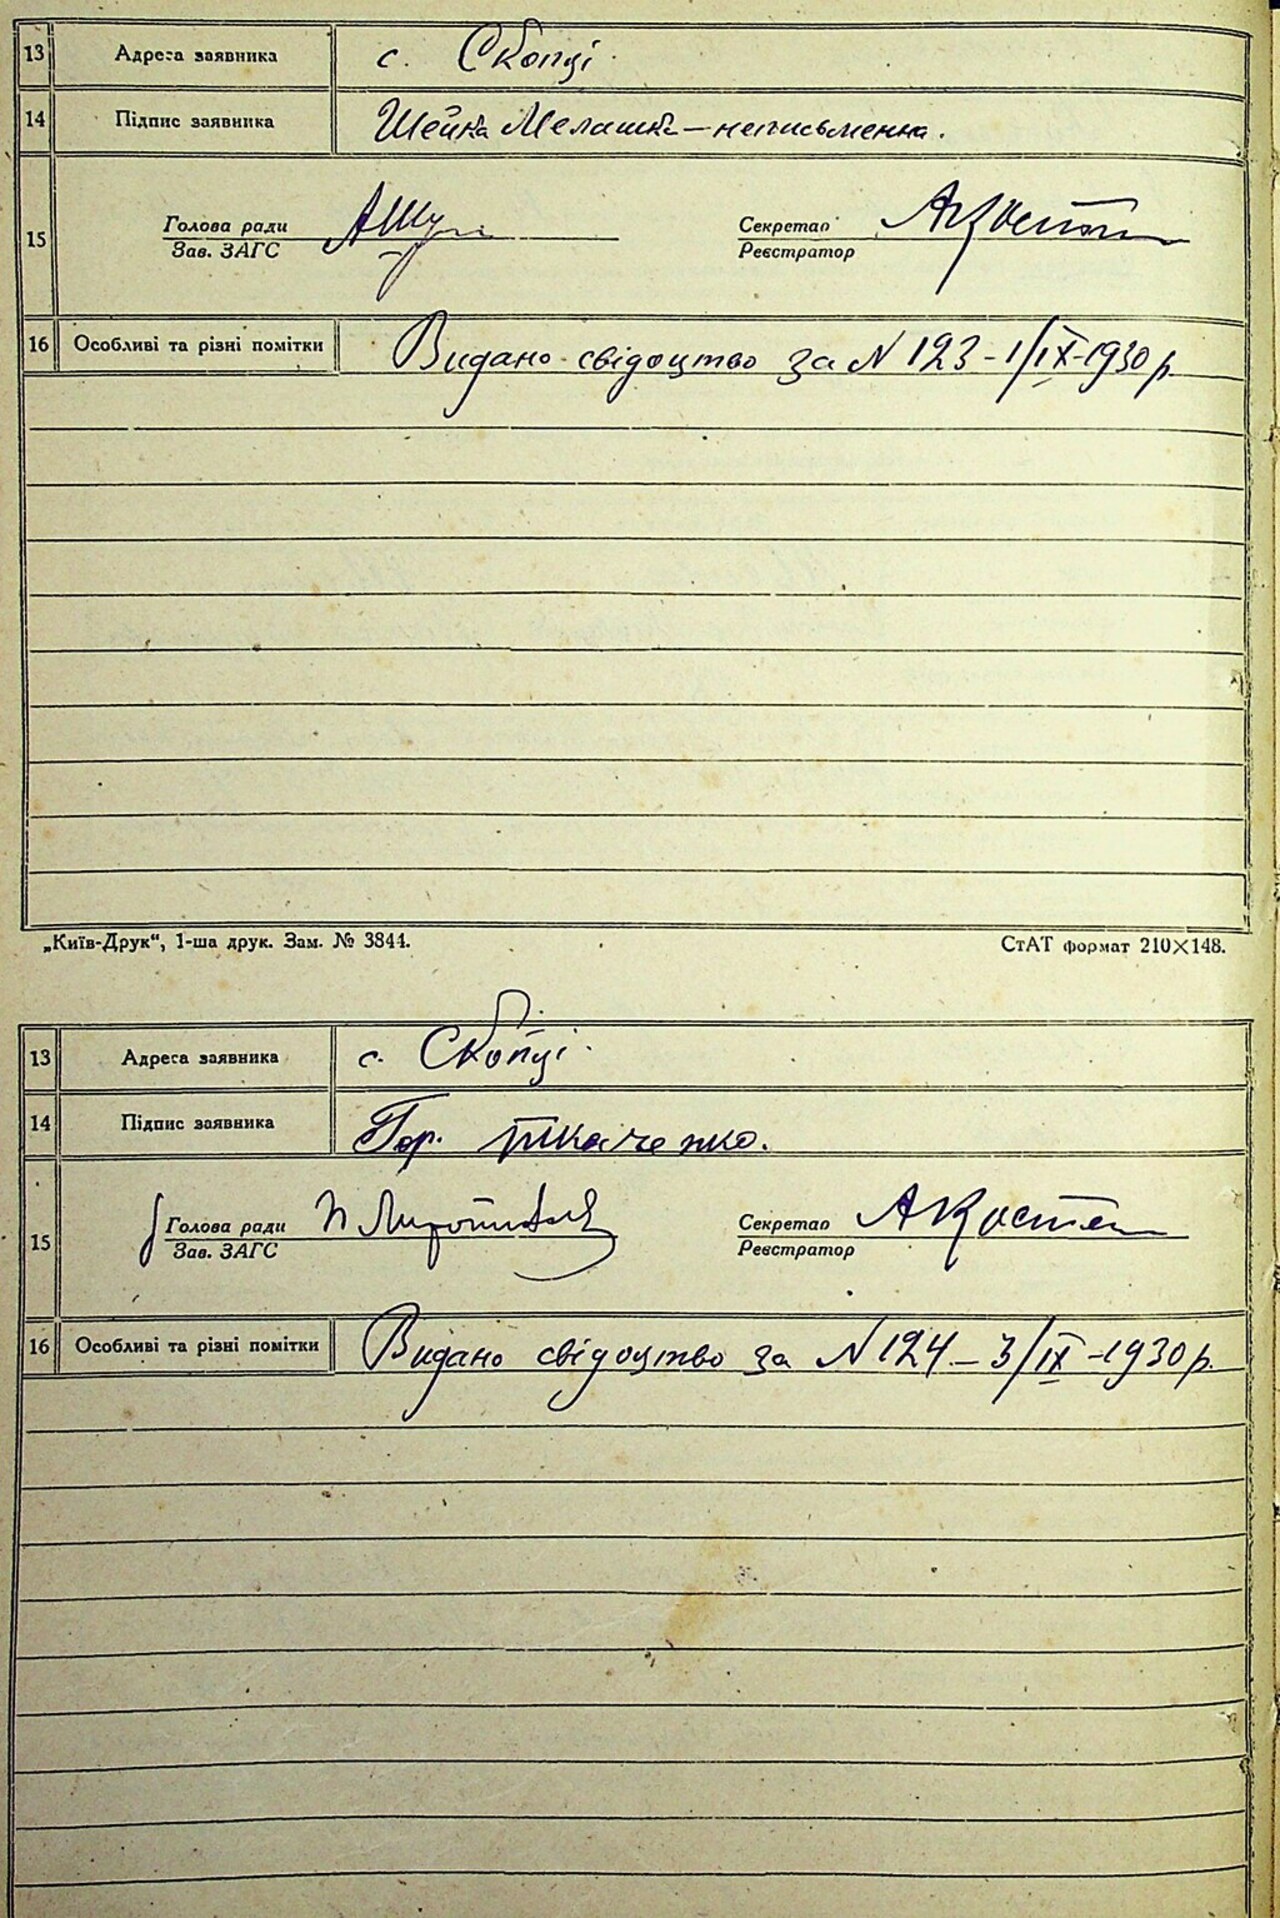 13 Адреса заявника с. Скопці
14 Підпис заявника Шейка Мелашка – неписьменна.
15 Голова ради Секретар
Зав. ЗАГС Реєстратор
16 Особливі та різні помітки Видано свідоцтво за N 123 – 1/IX–1930 р.
„Київ-Друк“, 1-ша друк. Зам. № 3844. СтАТ формат 210×148.
13 Адреса заявника с. Скопці
14 Підпис заявника Гор. Ткаченко.
15 Голова ради Секретар
Зав. ЗАГС Реєстратор
16 Особливі та різні помітки Видано свідоцтво за N 124 – 3/IX–1930 р.